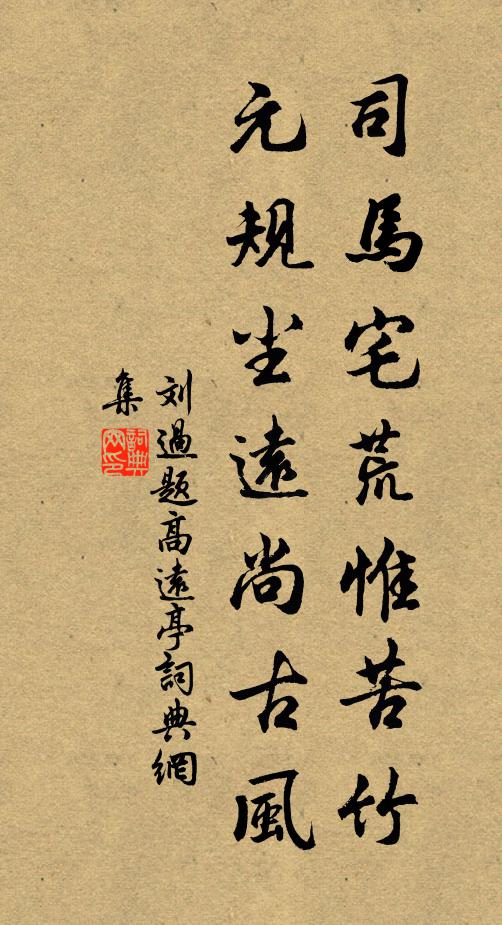 司馬宅荒惟苦竹
元规尘遠尚古風
刘過题高遠亭詞典網
集
詞典
网印